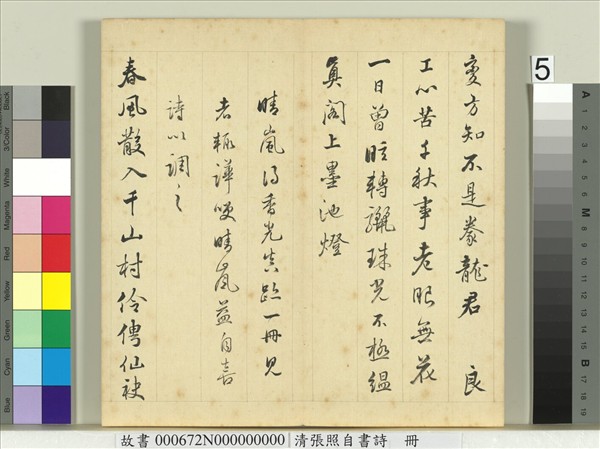 变方知不是豢龍君　良
工心苦千秋事老眼無花
一日曾眩轉驪珠光不極縕
真閣上墨池燈
晴嵐得香光真跡一冊見
者輒譁哽晴嵐益自喜
詩以調之
春風散入千山村伶俜仙袂
故書 000672N000000000 清張照自書詩 冊
5
Black
3/Color
White
Magenta
Red
Yellow
Green
Cyan
Blue
A
1
2
3
4
5
6
M
8
9
10
11
12
13
14
15
B
17
18
19